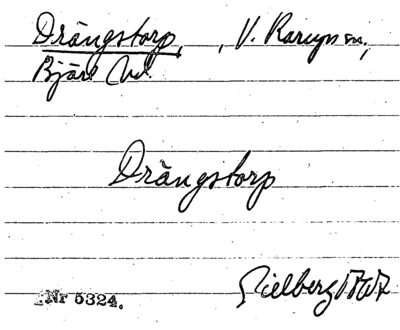 Drängstorp, , V. Karups sn,
Bjäre hd
Drängstorp
Nr 5324.